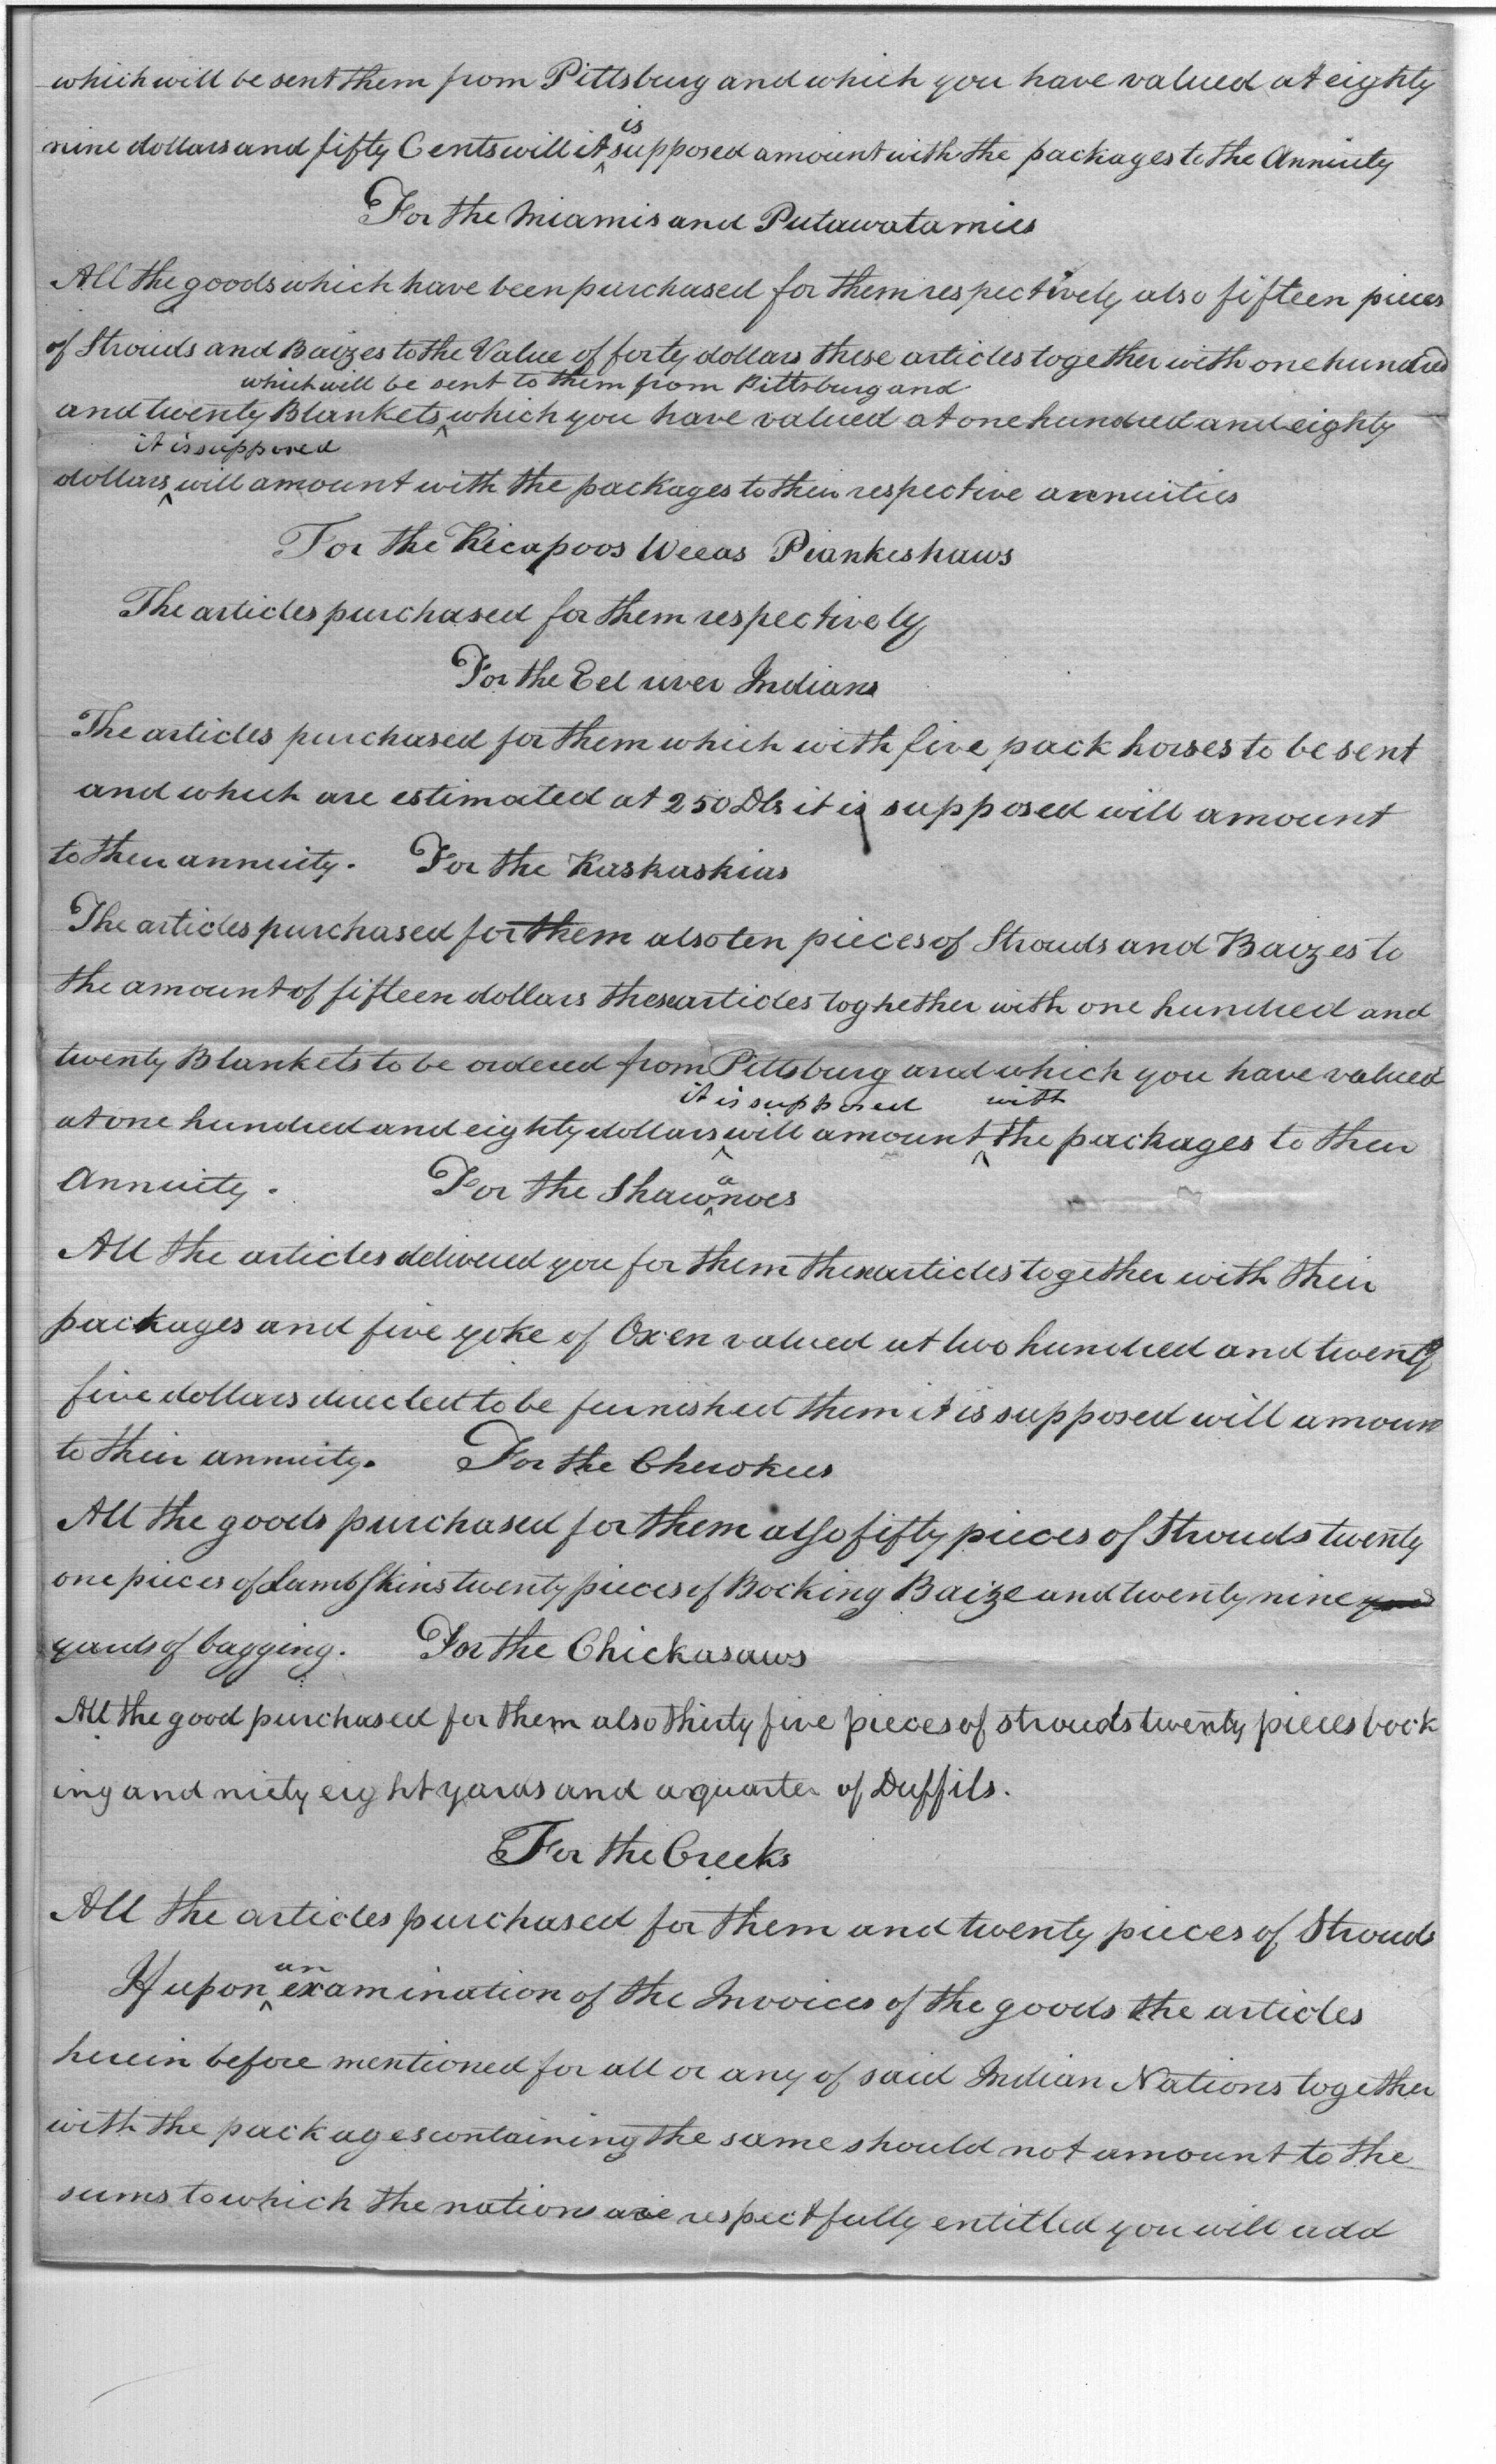 which will be sent them from Pittsburg and which you have valued at eighty
is
nine dollars and fifty Cents will it ^ supposed amount with the packages to the Annuity
For the Miamis and Putawatamies
All the goods which have been purchased for them respectively also fifteen pieces
of Strouds and Baizes to the Value of forty dollars these articles together with one hundred
which will be sent to them from Pittsburg and
and twenty Blankets ^ which you have valued at one hundred and eighty
it is supposed
dollars ^ will amount with the packages to their respective annuities
For the Kicapoos Weeas Piankeshaws
The articles purchased for them respectively
For the Eel river Indians
The articles purchased for them which with five pack horses to be sent
and which are estimated at 250 Dls it is supposed will amount
to their annuity. For the Kaskaskias
The articles purchased for them also ten pieces of Strouds and Baizes to
the amount of fifteen dollars these articles toghether with one hundred and
twenty Blankets to be ordered from Pittsburg and which you have valued
it is supposed with
at one hundred and eighty dollars ^ will amount ^ the packages to their
Annuity. For the Shaw^anoes
All the articles delivered you for them these articles together with their
packages and five yoke of Oxen valued at two hundred and twenty
five dollars directed to be furnished them it is supposed will amoun
to their annuity. For the Cherokees
All the goods purchased for them also fifty pieces of Strouds twenty
one pieces of Lamb Skins twenty pieces of Bocking Baize and twenty nine
yards of bagging. For the Chickasaws
All the good purchased for them also thirty five pieces of strouds twenty pieces bock
ing and niety eight yards and a quarter of Duffils.
For the Creeks
All the articles purchased for them and twenty pieces of Strouds
an
If upon ^ examination of the Invoices of the goods the articles
herein before mentioned for all or any of said Indian Nations together
with the packages containing the same should not amount to the
sums to which the nations are respectfully entitled you will add